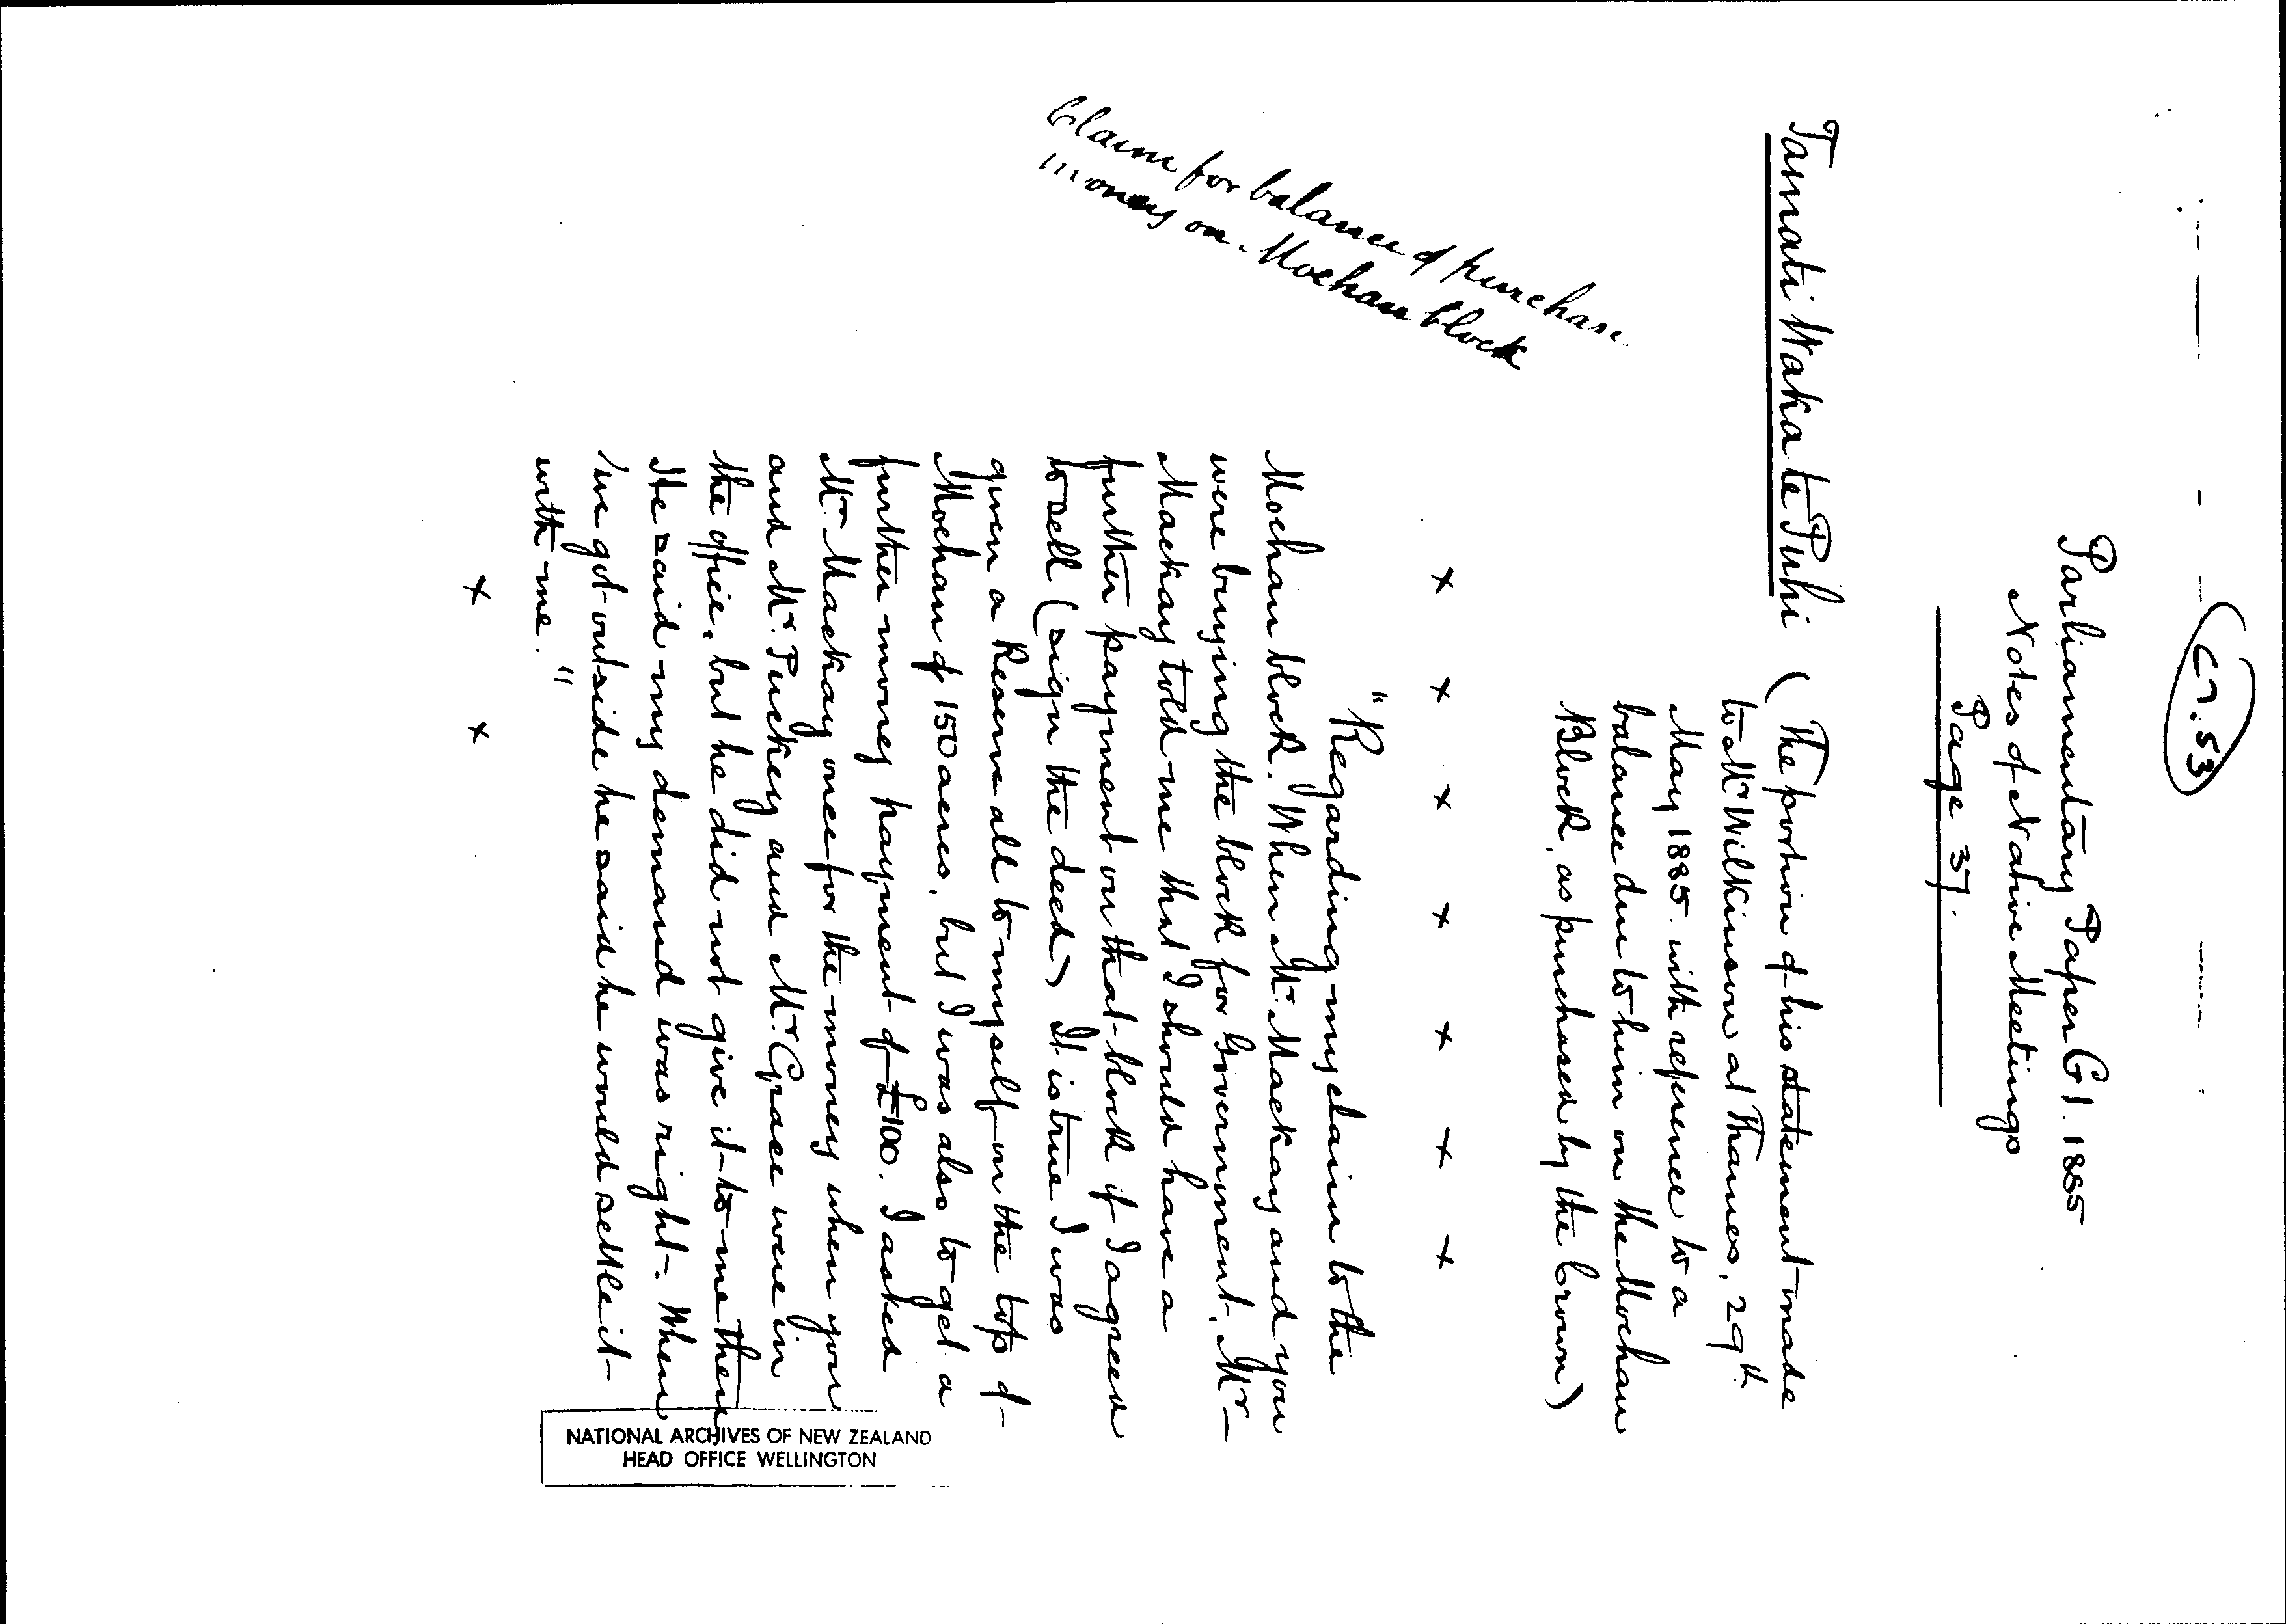 C7.53
Parliamentary Paper G1. 1885
Notes of Native Meetings
Page 37.
Tamati Waka te Puhi (The portion of his statement made
to Mr Wilkinson at Thames, 29th
May 1885 with reference to a
balance due to him on the Moehau
Block, as purchased by the Crown)
x x x x x x x
"Regarding my claim to the
Moehau block. When Mr. Mackay and you
were buying the block for Government, Mr
Mackay told me that I should have a
further payment on that block if I agreed
to sell (sign the deed) It is true I was
given a Reserve all to myself on the top of
Moehau of 150 acres, but I was also to get a
further money payment of £100. I asked
Mr. Mackay once for the money when you
and Mr. Puckey and Mr. Grace were in
the office, but he did not give it to me then
He said my demand was right. When
we got outside he said he would settle it
with me."
x x
Claim for balance of purchase
money on Moehau block
NATIONAL ARCHIVES OF NEW ZEALAND
HEAD OFFICE WELLINGTON